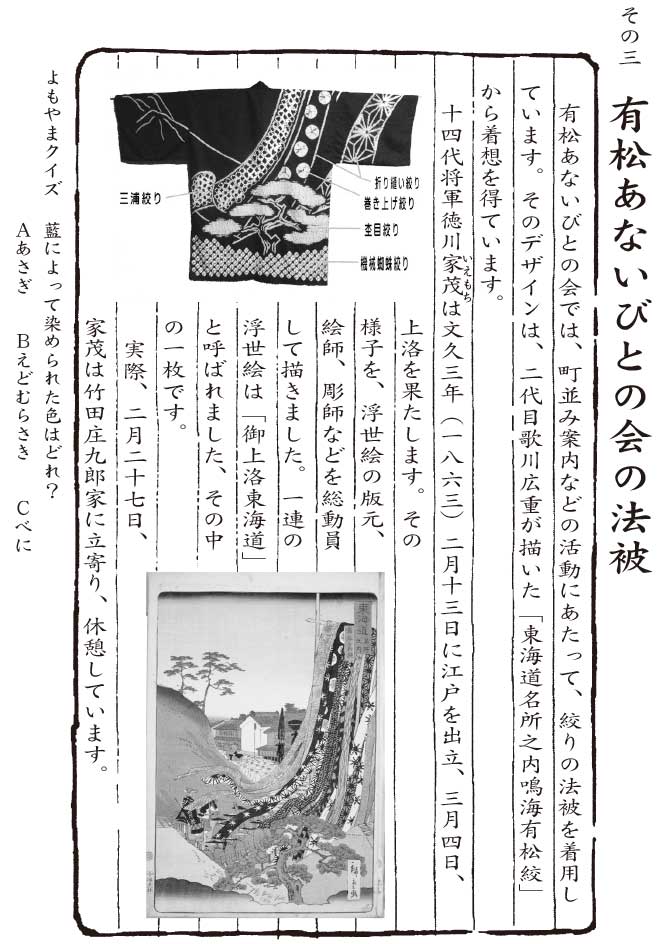 その三
有松あないびとの会の法被
有松あないびとの会では、町並み案内などの活動にあたって、絞りの法被を着用し
ています。そのデザインは、二代目歌川広重が描いた「東海道名所之内鳴海有松絞」
から着想を得ています。
十四代将軍徳川家茂は文久三年（一八六三）二月十三日に江戸を出立、三月四日、
いえもち
上洛を果たします。その
様子を、浮世絵の版元、
絵師、彫師などを総動員
して描きました。一連の
浮世絵は「御上洛東海道」
と呼ばれました、その中
の一枚です。
実際、二月二十七日、
家茂は竹田庄九郎家に立寄り、休憩しています。
三浦絞り
折り縫い絞り
巻き上げ絞り
杢目絞り
機械蜘蛛絞り
東海道
よもやまクイズ　藍によって染められた色はどれ？
Aあさぎ　Bえどむらさき　Cべに